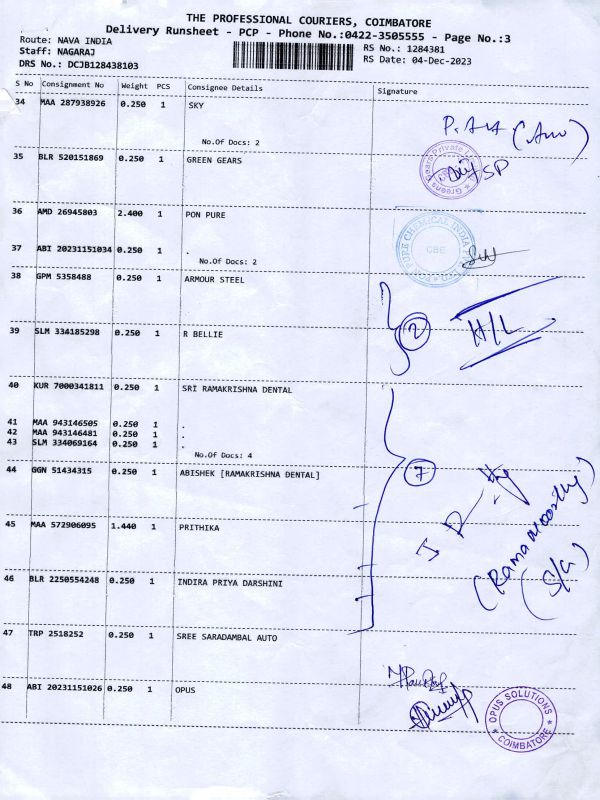 THE PROFESSIONAL COURIERS, COIMBATORE
Delivery Runsheet - PCP - Phone No.:0422-3505555 - Page No.:3
Route: NAVA INDIA
RS No.: 1284381
Staff: NAGARAJ
RS Date: 04-Dec-2023
DRS No.: DCJB128438103
S No Consignment No Weight PCS Consignee Details Signature
34 MAA 287938926 0.250 1 SKY
No.Of Docs: 2
35 BLR 520151869 0.250 1 GREEN GEARS
SP
36 AMD 26945803 2.400 1 PON PURE
PURE CHEMICAL INDIA
CBE
37 ABI 20231151034 0.250 1 .
No.Of Docs: 2
38 GPM 5358488 0.250 1 ARMOUR STEEL
2 H/L
39 SLM 334185298 0.250 1 R BELLIE
40 KUR 7000341811 0.250 1 SRI RAMAKRISHNA DENTAL
41 MAA 943146505 0.250 1 .
42 MAA 943146481 0.250 1 .
43 SLM 334069164 0.250 1 .
No.Of Docs: 4
44 GGN 51434315 0.250 1 ABISHEK [RAMAKRISHNA DENTAL]
7
45 MAA 572906095 1.440 1 PRITHIKA
(Ramamoorthy)
(S/G)
46 BLR 2250554248 0.250 1 INDIRA PRIYA DARSHINI
47 TRP 2518252 0.250 1 SREE SARADAMBAL AUTO
48 ABI 20231151026 0.250 1 OPUS
OPUS SOLUTIONS
COIMBATORE